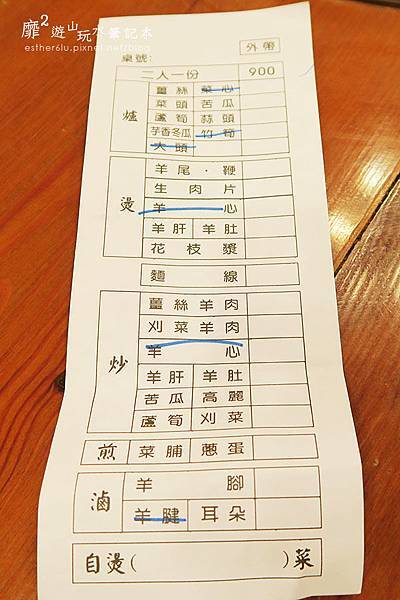 靡²遊山玩水筆記本
esther6lu.pixnet.net/blog
外帶
桌號:
二人一份 900
爐
薑絲 菜心
菜頭 苦瓜
蘆筍 蒜頭
芋香冬瓜 竹筍
大頭
燙
羊尾．鞭
生肉片
羊心
羊肝 羊肚
花枝漿
麵線
炒
薑絲羊肉
刈菜羊肉
羊心
羊肝 羊肚
苦瓜 高麗
蘆筍 刈菜
煎 菜脯 蔥蛋
滷
羊腳
羊腱 耳朵
自燙( )菜